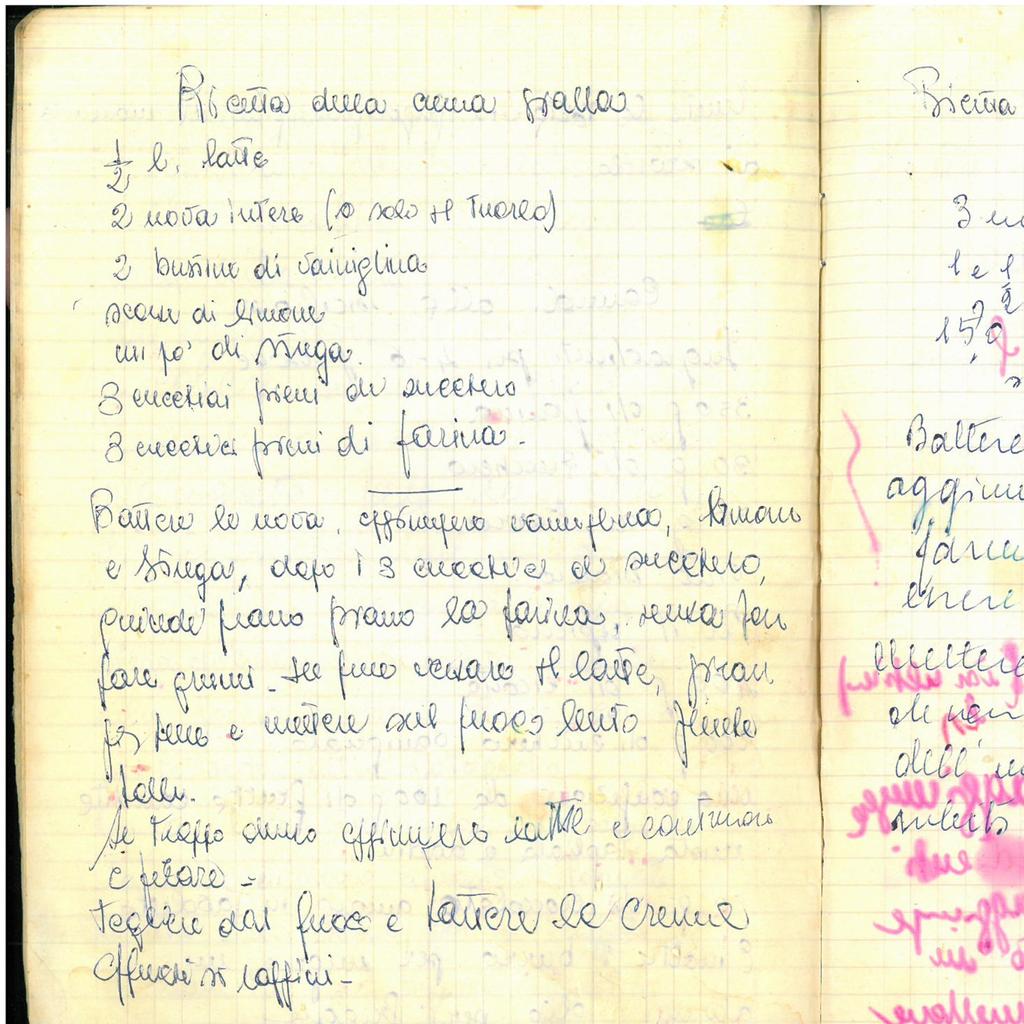 Ricetta della crema gialla
1/2 l. latte
2 uova intere (o solo il tuorlo)
2 bustine di vainiglina
scorza di limone
un po' di strega.
3 cucchiai pieni di zucchero
3 cucchiai pieni di farina.
Battere le uova, aggiungere vainiglina, limone
e strega, dopo i 3 cucchiai di zucchero,
quindi piano piano la farina, senza far
fare grumi. In fine versare il latte, pian
piano e mettere sul fuoco lento finché
bolle.
Se troppo duro aggiungere latte e continuare
a girare -
Togliere dal fuoco e battere la crema
affinché si raffini -
Ricetta
3
1 e 1/2
15
Battere
aggiun
farin
Mettere
di
dell'
subito